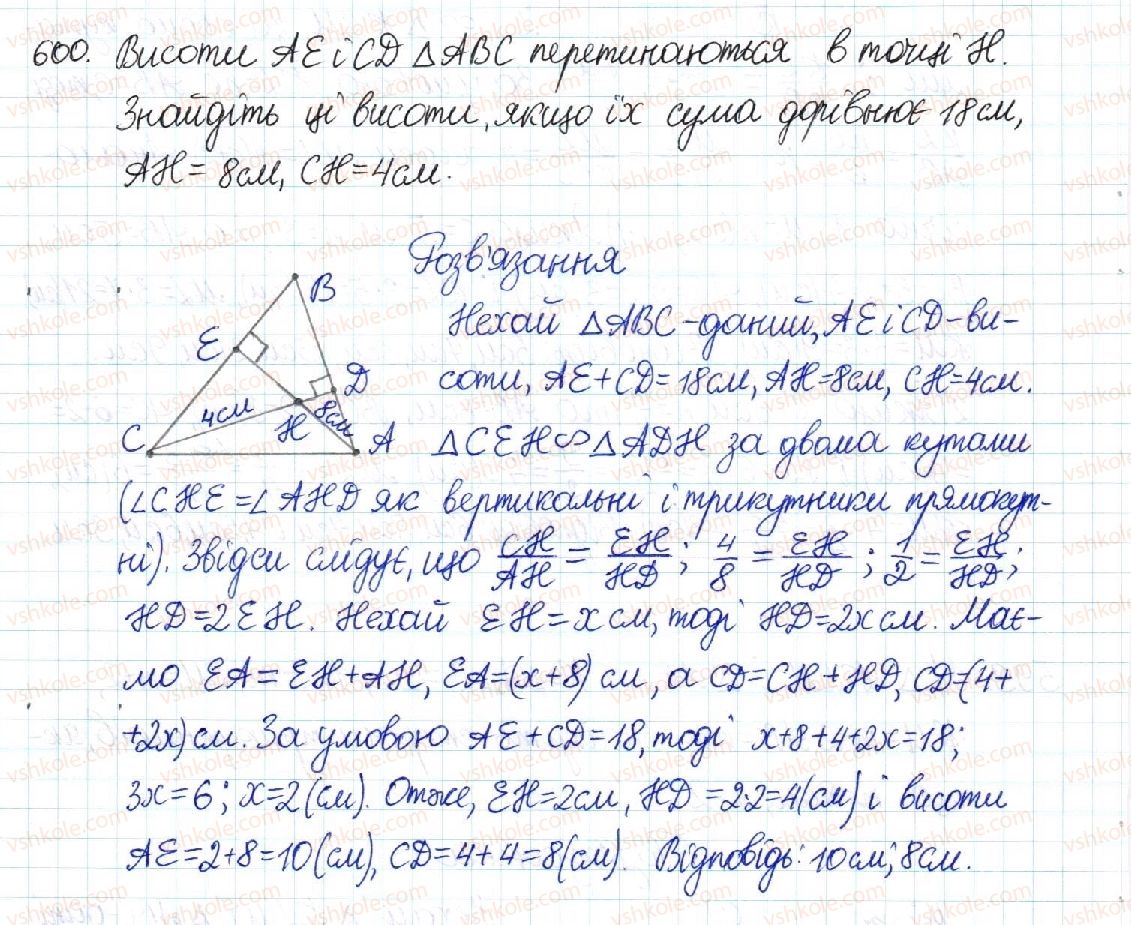 600. Висоти AE і CD △ABC перетинаються в точці H.
Знайдіть ці висоти, якщо їх сума дорівнює 18 см,
AH = 8 см, CH = 4 см.
Розв'язання
B
E
D
4 см
H
8 см
C
A
Нехай △ABC - даний, AE і CD - ви-
соти, AE + CD = 18 см, AH = 8 см, CH = 4 см.
△CEH ∽ △ADH за двома кутами
(∠CHE = ∠AHD як вертикальні і трикутники прямокут-
ні). Звідси слідує, що CH/AH = EH/HD; 4/8 = EH/HD; 1/2 = EH/HD;
HD = 2EH. Нехай EH = x см, тоді HD = 2x см. Має-
мо EA = EH + AH, EA = (x + 8) см, а CD = CH + HD, CD = (4 +
+ 2x) см. За умовою AE + CD = 18, тоді x + 8 + 4 + 2x = 18;
3x = 6; x = 2 (см). Отже, EH = 2 см, HD = 2·2 = 4 (см) і висоти
AE = 2 + 8 = 10 (см), CD = 4 + 4 = 8 (см). Відповідь: 10 см; 8 см.